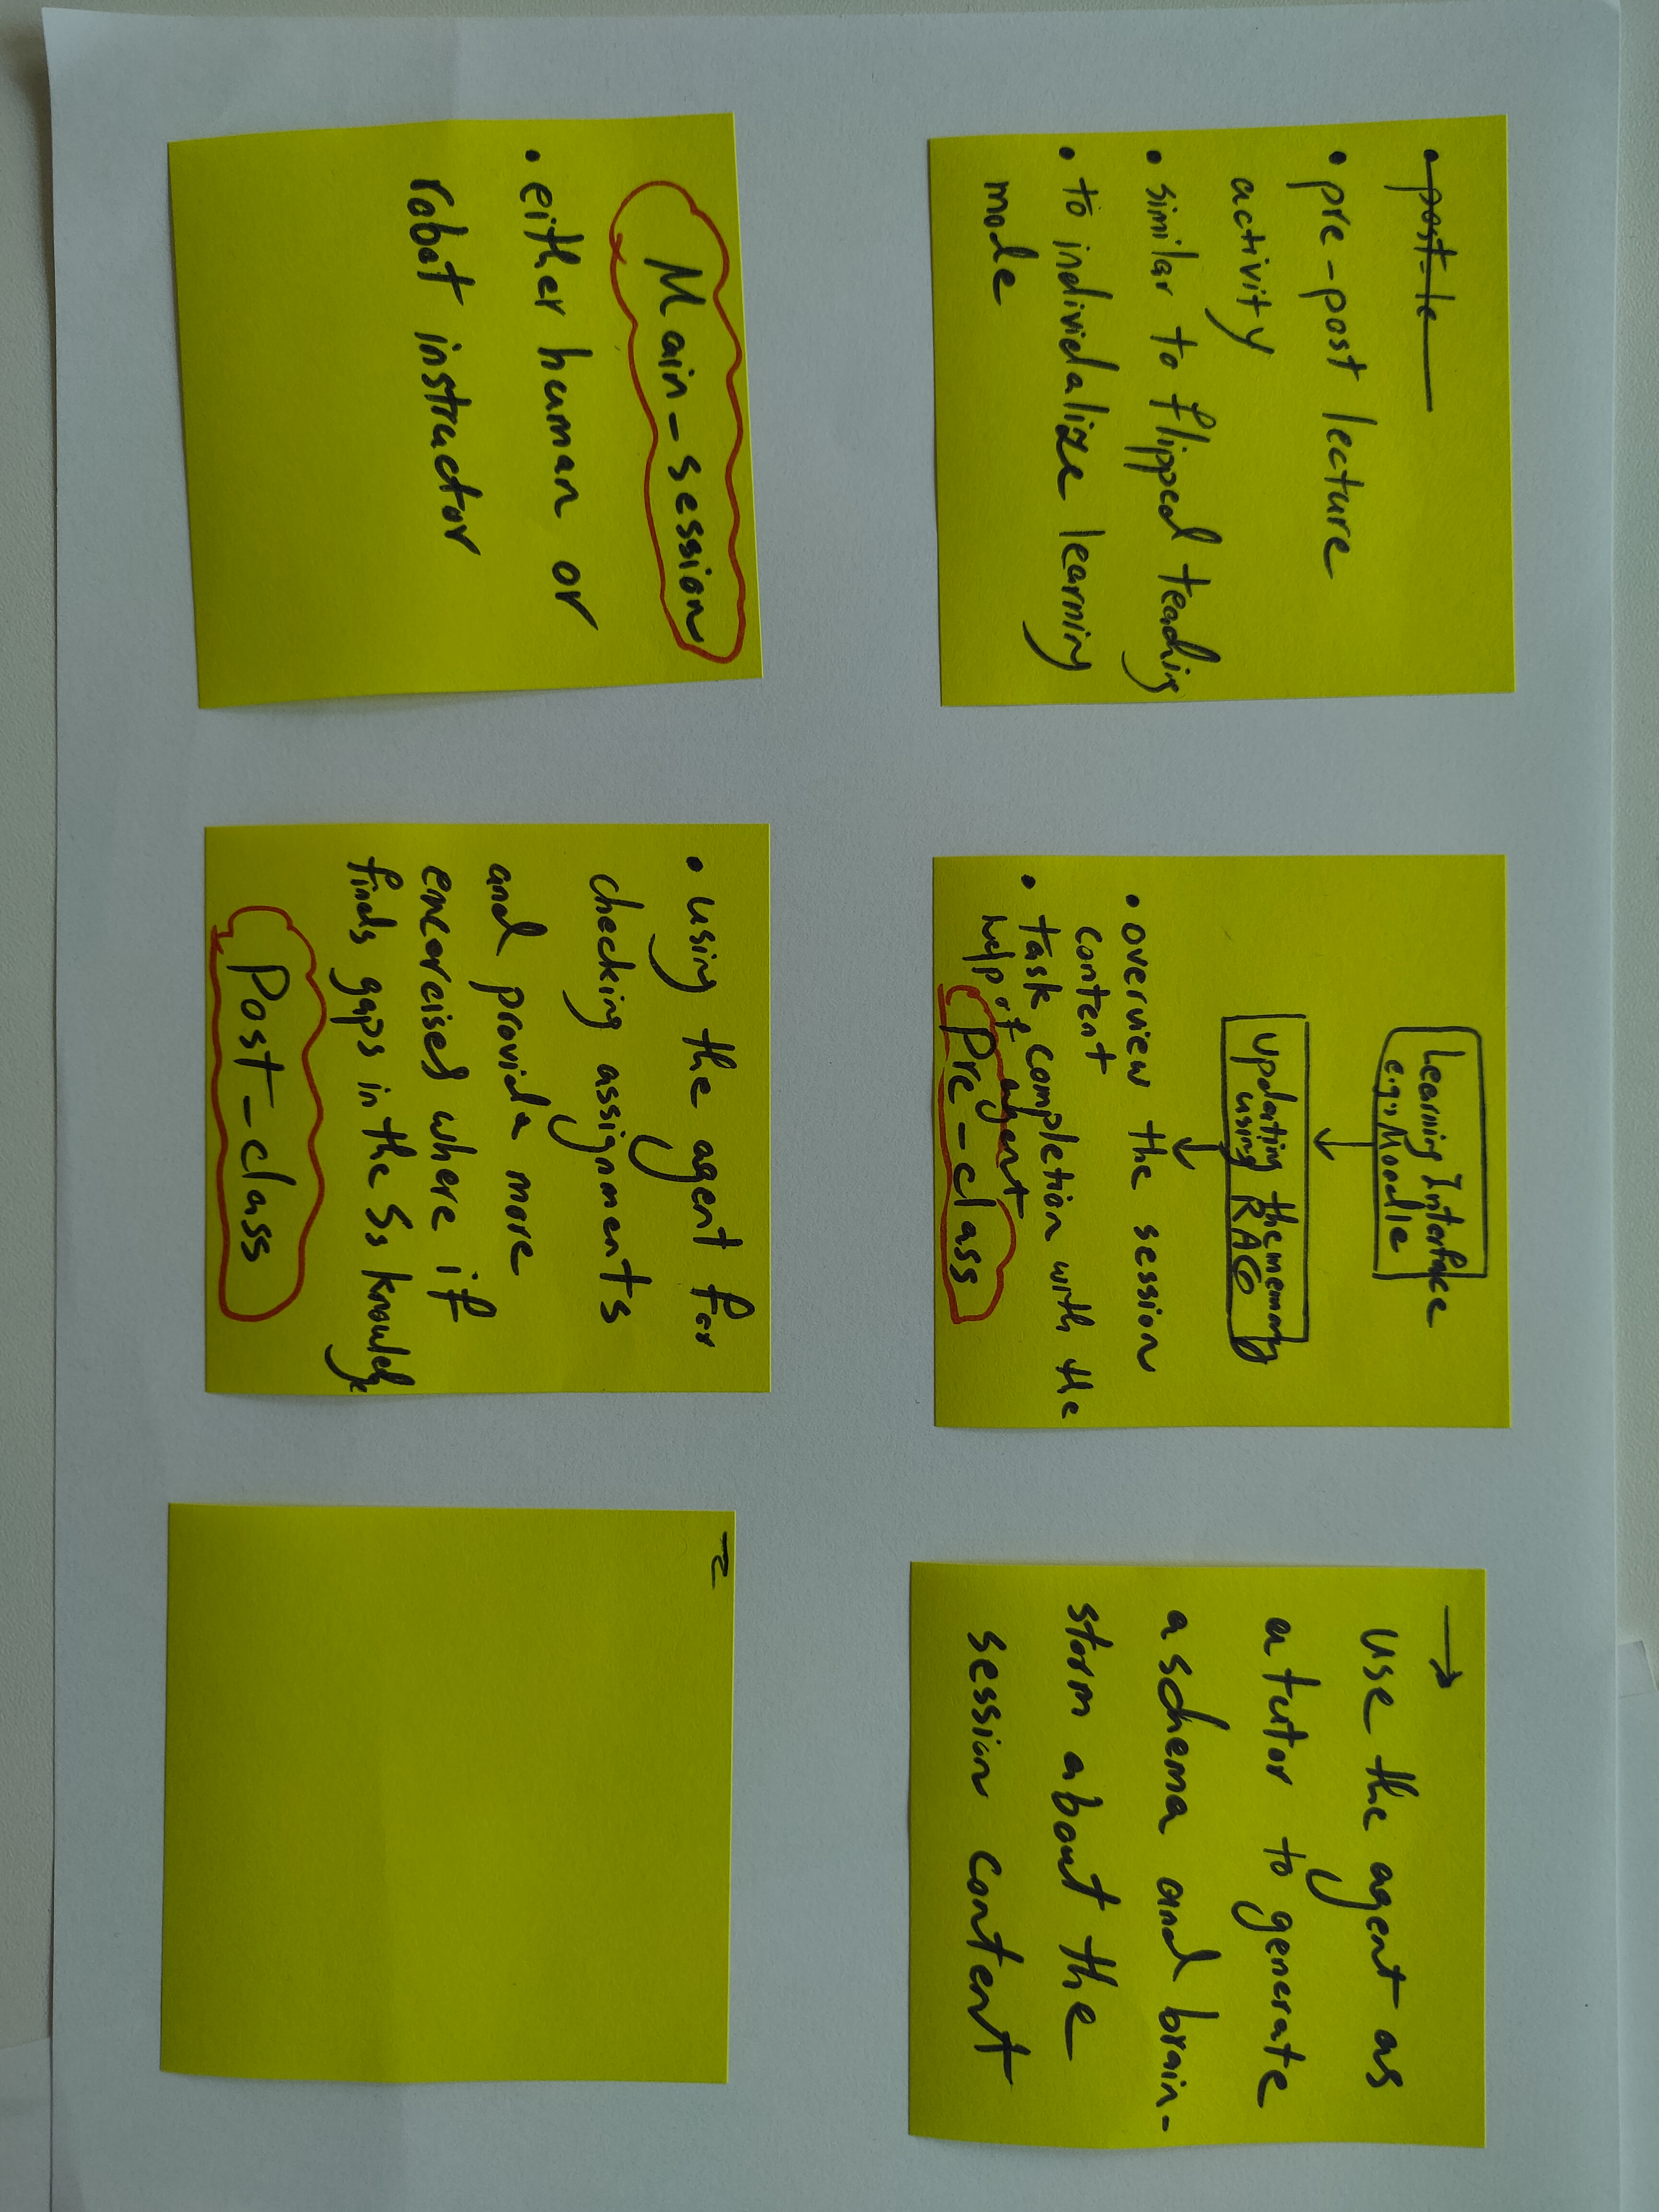 • post-le
• pre-post lecture
activity
• similar to flipped teaching
• to individalize learning
mode
Learning Interface
e.g., Moodle
Updating the memory
using RAG
• overview the session
content
• task completion with the
help of agent
Pre-class
→
use the agent as
a tutor to generate
a schema and brain-
storm about the
session content
Main-session
• either human or
robot instructor
• using the agent for
checking assignments
and provide more
where if
finds gaps in the Ss knowledge
Post-class